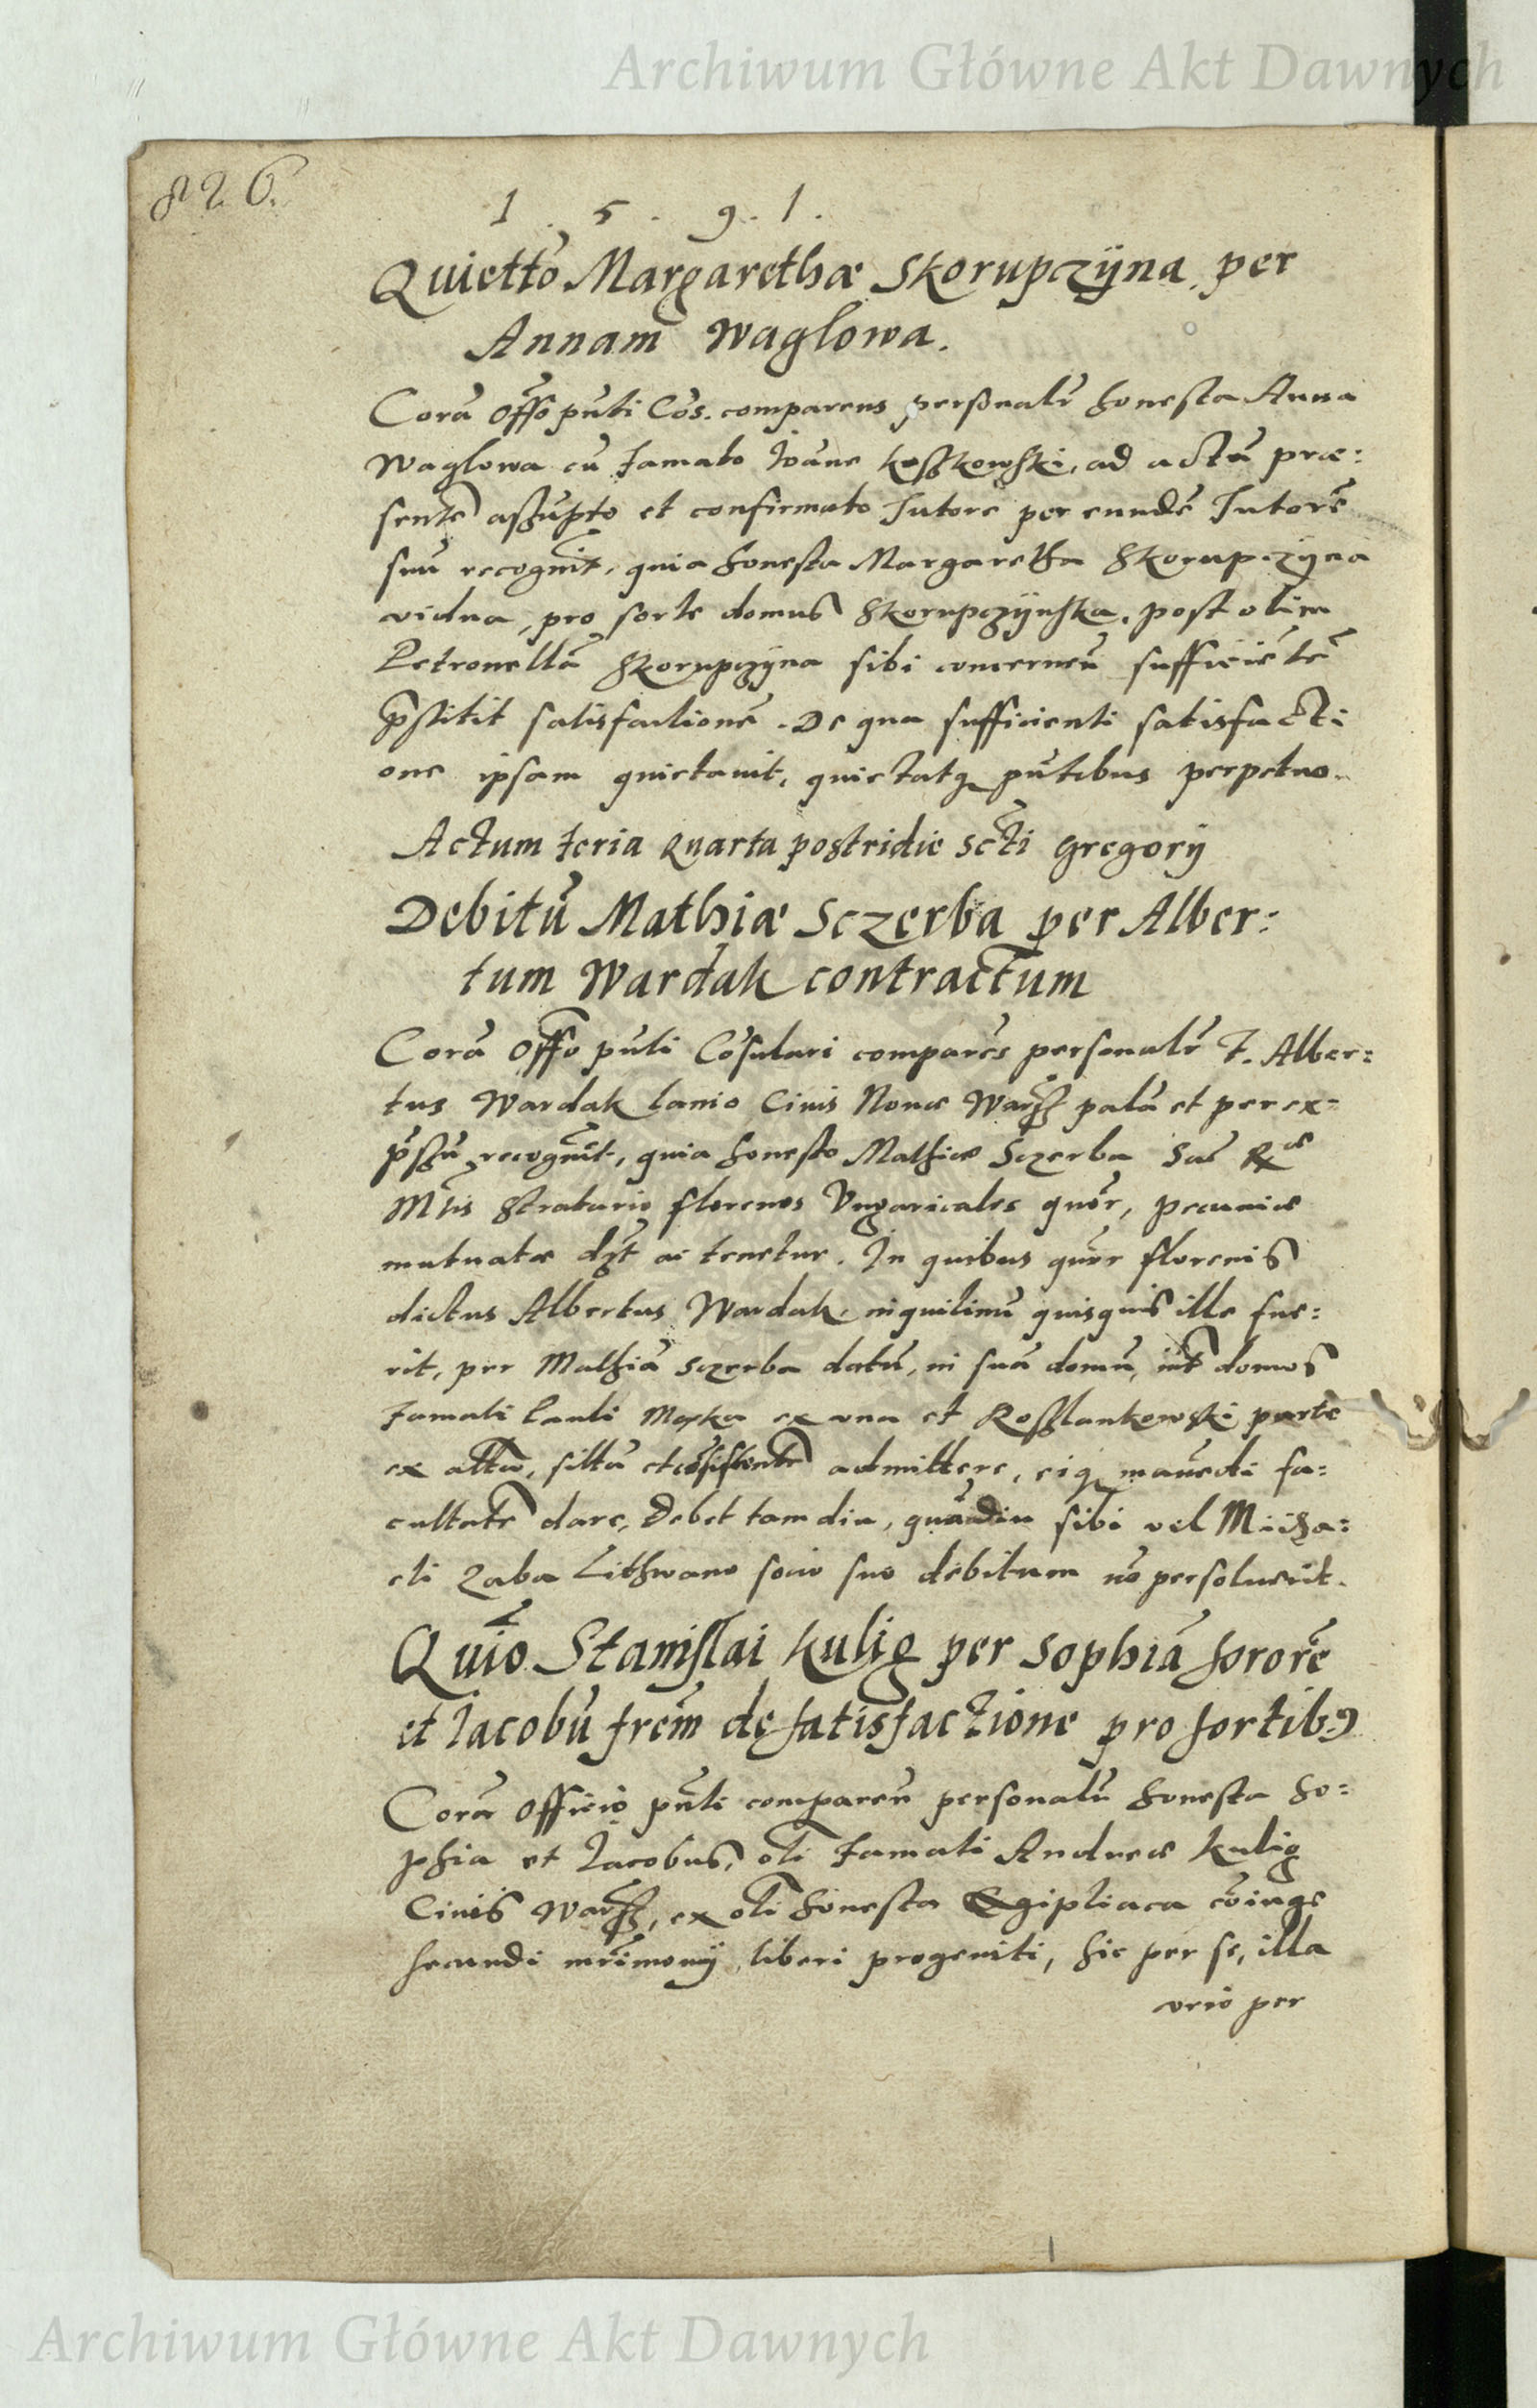 Archiwum Główne Akt Dawnych
826.
1 . 5 . 9 . 1 .
Quiettō Margarethæ Skorupczÿna per
Annam Waglowa.
Corā Offō pūti Cōs. comparens personalr̄ honesta Anna
Waglowa cū famato Ioāne Koszkowski, ad actū præ:
sentē assūpto et confirmato tutore per eundē Tutorē
suū recognit, quia honesta Margaretha Skorupczÿna
vidua, pro sorte domus Skorupczÿnska, post olim
Petronellā Skorupczÿna sibi concerneñ sufficiētē
p̄stitit satisfactionē. De qua sufficienti satisfacti
one ipsam quietauit, quietatq pūtibus perpetuo.
Actum feria quarta postridie Scti Gregorÿ
Debitū Mathiæ Sczerba per Alber:
tum Wardak contractum
Corā Offō pūti Cōsulari comparēs personalr̄ F. Alber=
tus Wardak lanio Ciuis Nouæ Warss palā et per ex=
p̄ssū recognit, quia honesto Mathiæ Sczerba Sac Ræ
Mtis Stratario florenos Vngaricales quor̄, pecuniæ
mutuatæ dzt ac tenetur. In quibus quor̄ florenis
dictus Albertus Wardak, inquilinū quisquis ille fue:
rit, per Mathiā Sczerba datū, in suā domū, int domos
famati Pauli ex vna et Roszlankowski parte
ex altā, sittā et cōsistentē admittere, eiq manēdi fa=
cultatē dare, debet tam diu, quādiu sibi vel Micha=
eli Zaba Lithwano socio suo debitum nō persoluerit.
Quiō Stanislai Kulig per Sophiā sororē
et Iacobū frēm de satisfactione pro sortib9
Corā Officio pūti compareñ personalr̄ honesta So=
phia et Iacobus, oli famati Andreæ Kulig
Ciuis Warss, ex oli honesta Egiptiaca cōiuge
secundi mr̄imonÿ liberi progeniti, hic per se, illa
vrio per
Archiwum Główne Akt Dawnych